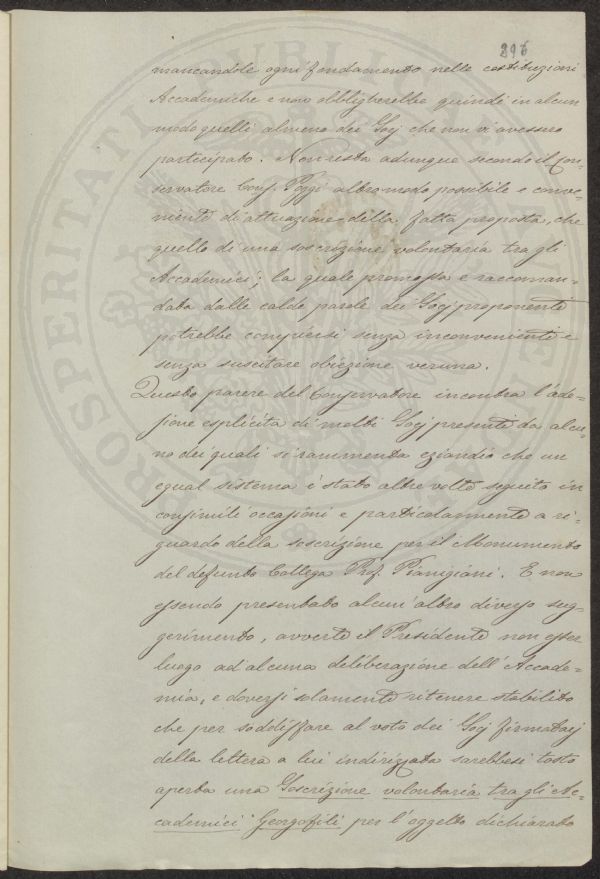 896
mancandole ogni fondamento nelle costituzioni
Accademiche e non obbligherebbe quindi in alcun
modo quelli almeno dei Socj che non vi avessero
participato. Non resta adunque secondo il Con-
servatore Conf. Poggi altro modo possibile e conve-
niente di attuazione della fatta proposta, che
quello di una soscrizione volontaria tra gli
Accademici; la quale promossa e raccoman-
data dalle calde parole dei Socj proponenti
potrebbe compiersi senza inconveniente e
senza suscitare obiezione veruna.
Questo parere del Conservatore incontra l'ade-
sione esplicita di molti Socj presenti da alcu-
no dei quali si rammenta eziandio che un
egual sistema è stato altre volte seguito in
consimili occasioni e particolarmente a ri-
guardo della soscrizione per il Monumento
del defunto Collega Prof. Pianigiani. E non
essendo presentato alcun'altro diverso sug-
gerimento, avverte il Presidente non esser
luogo ad alcuna deliberazione dell'Accade-
mia, e doversi solamente ritenere stabilito
che per soddisfare al voto dei Socj firmatarj
della lettera a lui indirizzata sarebbesi tosto
aperta una Soscrizione volontaria tra gli Ac-
cademici Georgofili per l'oggetto dichiarato
PROSPERITATI PUBLICAE AUGENDAE